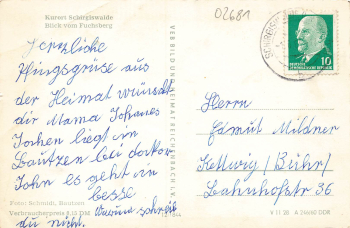 Kurort Schirgiswalde
Blick vom Fuchsberg
02681
Herzliche
Pfingsgrüse aus
der Heimat wünscht
dir Mama Johanes
Jochen liegt in
Bautzen bei doktor
John es geht in
besse
Warum schreib
du nicht.
Foto: Schmidt, Bautzen
Verbraucherpreis 0,15 DM
VEB BILD UND HEIMAT REICHENBACH I. V.
SCHIRGISW
10
DEUTSCHE DEMOKRATISCHE REPUBLIK
Herrn
Helmut Mildner
Kettwig/Buhr/
Bahnhofstr 36
V 11 28
DDR